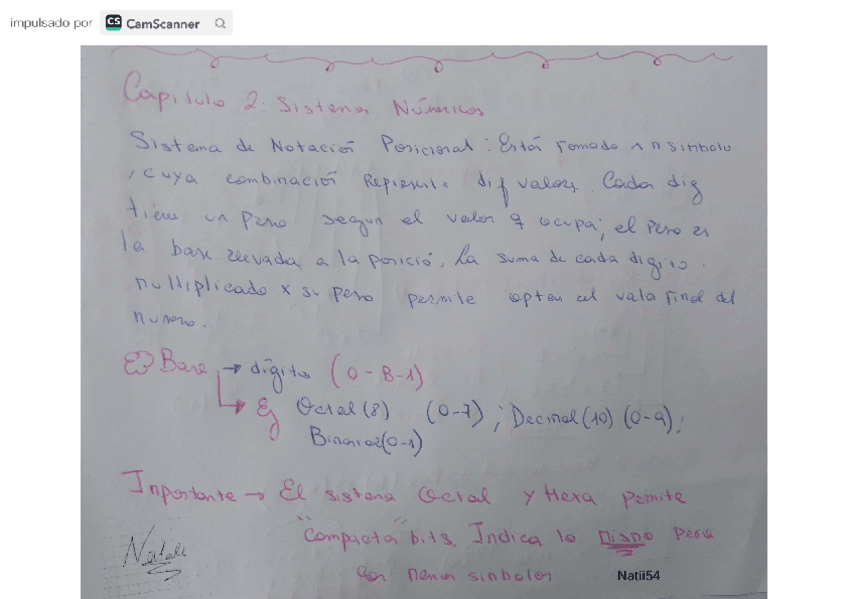 impulsado por CS CamScanner
Capitulo 2: Sistema Númericos
Sistema de Notación Posicional: Está formado x n simbolo
, cuya combinación Representa dif valores. Cada dig
tiene un peso segun el valor q ocupa; el peso es
la base elevada a la posició. La suma de cada digito
multiplicado x su peso permite el valor final del
numero.
Base → digito (0-B-1)
Ej Octal (8) (0-7); Decimal (10) (0-9);
Binario(0-1)
Importante → El sistema Octal y Hexa permite
"Compacta" bits. Indica lo mismo pero
con menos simbolos
Natali
Natii54